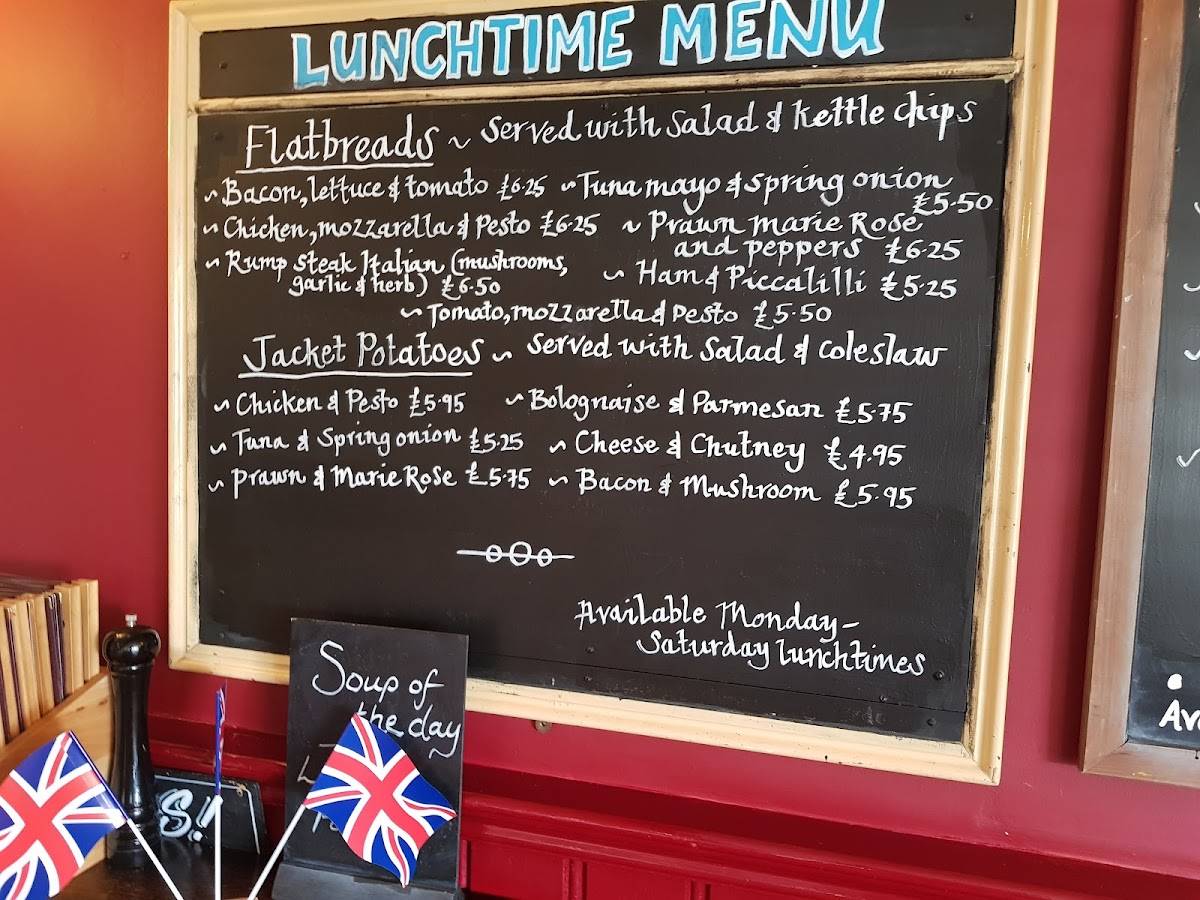 LUNCHTIME MENU
Flatbreads ~ Served with Salad & kettle chips
~ Bacon, lettuce & tomato £6.25 ~ Tuna mayo & spring onion £5.50
~ Chicken, mozzarella & Pesto £6.25 ~ Prawn marie Rose
and peppers £6.25
~ Rump steak Italian (mushrooms,
garlic & herb) £6.50
~ Ham & Piccalilli £5.25
~ Tomato, mozzarella & Pesto £5.50
Jacket Potatoes ~ Served with Salad & coleslaw
~ Chicken & Pesto £5.95 ~ Bolognaise & Parmesan £5.75
~ Tuna & Spring onion £5.25 ~ Cheese & Chutney £4.95
~ Prawn & Marie Rose £5.75 ~ Bacon & Mushroom £5.95
Available Monday –
Saturday lunchtimes
Soup of
the day
S!